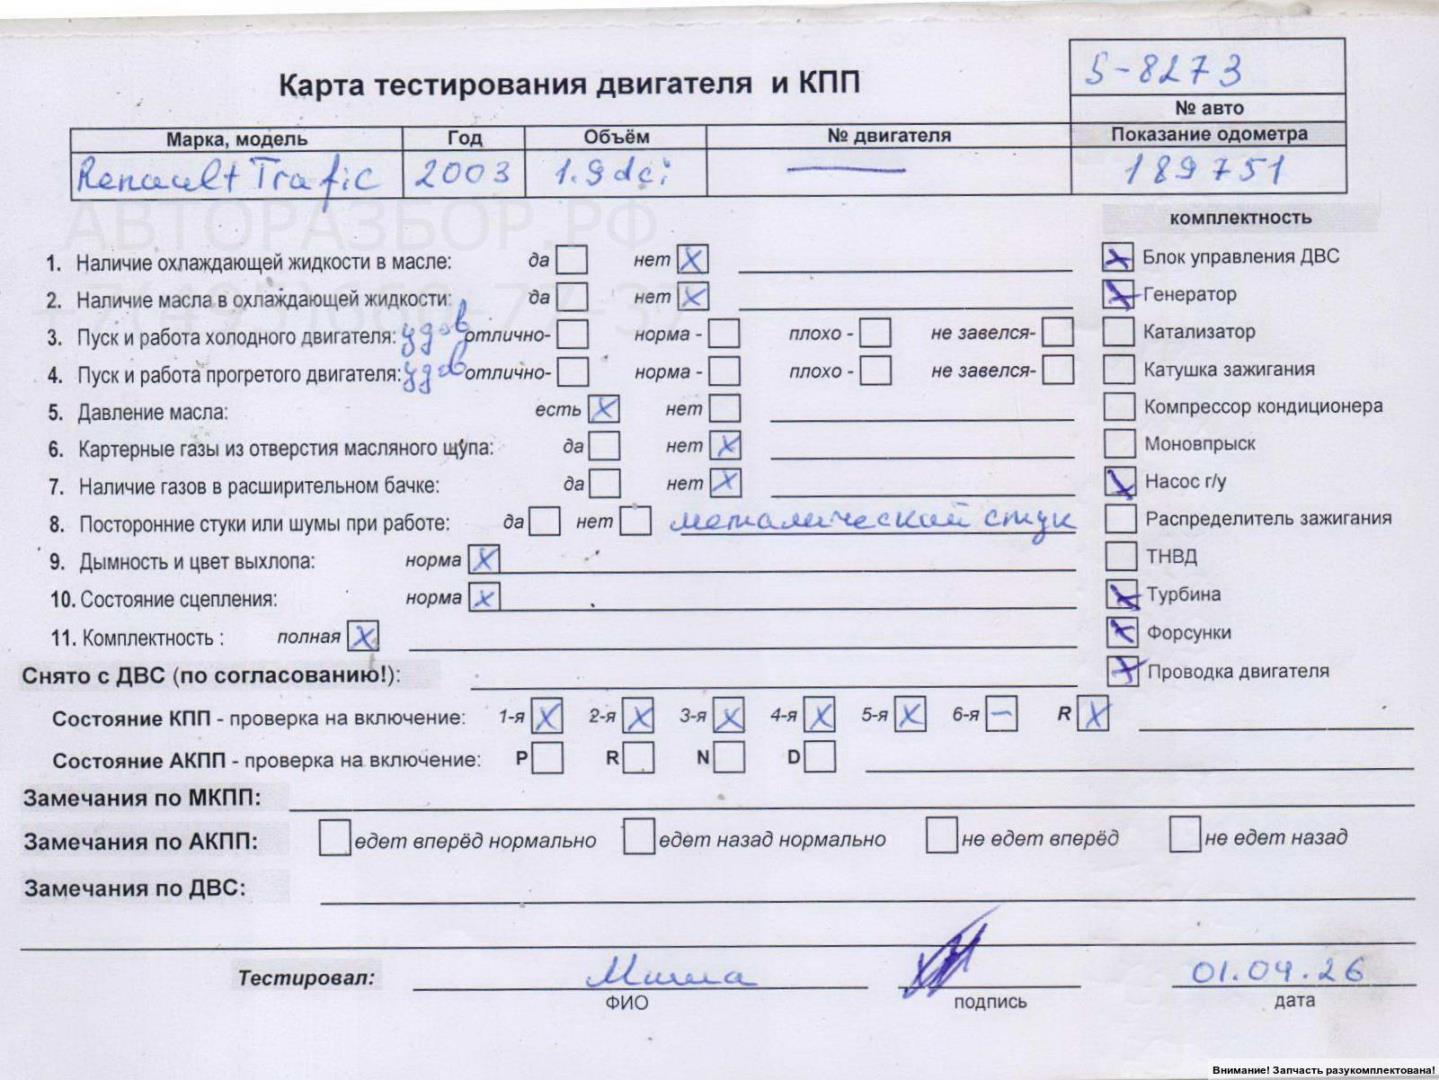 Карта тестирования двигателя и КПП
S-8273
№ авто
Марка, модель Год Объём № двигателя Показание одометра
Renault Trafic 2003 1.9 dci — 189751
АВТОРАЗБОР.РФ
комплектность
1. Наличие охлаждающей жидкости в масле: да нет X
Блок управления ДВС
2. Наличие масла в охлаждающей жидкости: да нет X
Генератор
3. Пуск и работа холодного двигателя: удов отлично- норма - плохо - не завелся-
Катализатор
4. Пуск и работа прогретого двигателя: удов отлично- норма - плохо - не завелся-
Катушка зажигания
5. Давление масла: есть X нет
Компрессор кондиционера
6. Картерные газы из отверстия масляного щупа: да нет X
Моновпрыск
7. Наличие газов в расширительном бачке: да нет X
Насос г/у
8. Посторонние стуки или шумы при работе: да нет металический стук
Распределитель зажигания
9. Дымность и цвет выхлопа: норма X
ТНВД
10. Состояние сцепления: норма X
Турбина
11. Комплектность : полная X
Форсунки
Снято с ДВС (по согласованию!):
Проводка двигателя
Состояние КПП - проверка на включение: 1-я X 2-я X 3-я X 4-я X 5-я X 6-я — R X
Состояние АКПП - проверка на включение: P R N D
Замечания по МКПП:
Замечания по АКПП: едет вперёд нормально едет назад нормально не едет вперёд не едет назад
Замечания по ДВС:
Тестировал: Миша 01.04.26
ФИО подпись дата
Внимание! Запчасть разукомплектована!